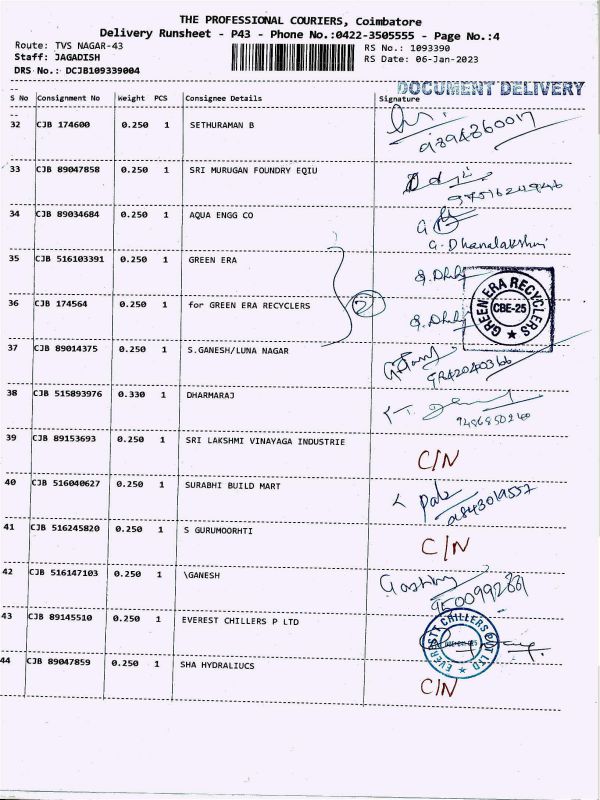 THE PROFESSIONAL COURIERS, Coimbatore
Delivery Runsheet - P43 - Phone No.:0422-3505555 - Page No.:4
Route: TVS NAGAR-43 RS No.: 1093390
Staff: JAGADISH RS Date: 06-Jan-2023
DRS No.: DCJB109339004
DOCUMENT DELIVERY
S No Consignment No Weight PCS Consignee Details Signature
32 CJB 174600 0.250 1 SETHURAMAN B
33 CJB 89047858 0.250 1 SRI MURUGAN FOUNDRY EQIU
34 CJB 89034684 0.250 1 AQUA ENGG CO
G. Dhanalakshmi
35 CJB 516103391 0.250 1 GREEN ERA
36 CJB 174564 0.250 1 for GREEN ERA RECYCLERS
2
GREEN ERA RECYCLERS
CBE-25
37 CJB 89014375 0.250 1 S.GANESH/LUNA NAGAR
38 CJB 515893976 0.330 1 DHARMARAJ
39 CJB 89153693 0.250 1 SRI LAKSHMI VINAYAGA INDUSTRIE
C/N
40 CJB 516040627 0.250 1 SURABHI BUILD MART
41 CJB 516245820 0.250 1 S GURUMOORHTI
C/N
42 CJB 516147103 0.250 1 \GANESH
43 CJB 89145510 0.250 1 EVEREST CHILLERS P LTD
44 CJB 89047859 0.250 1 SHA HYDRALIUCS
C/N